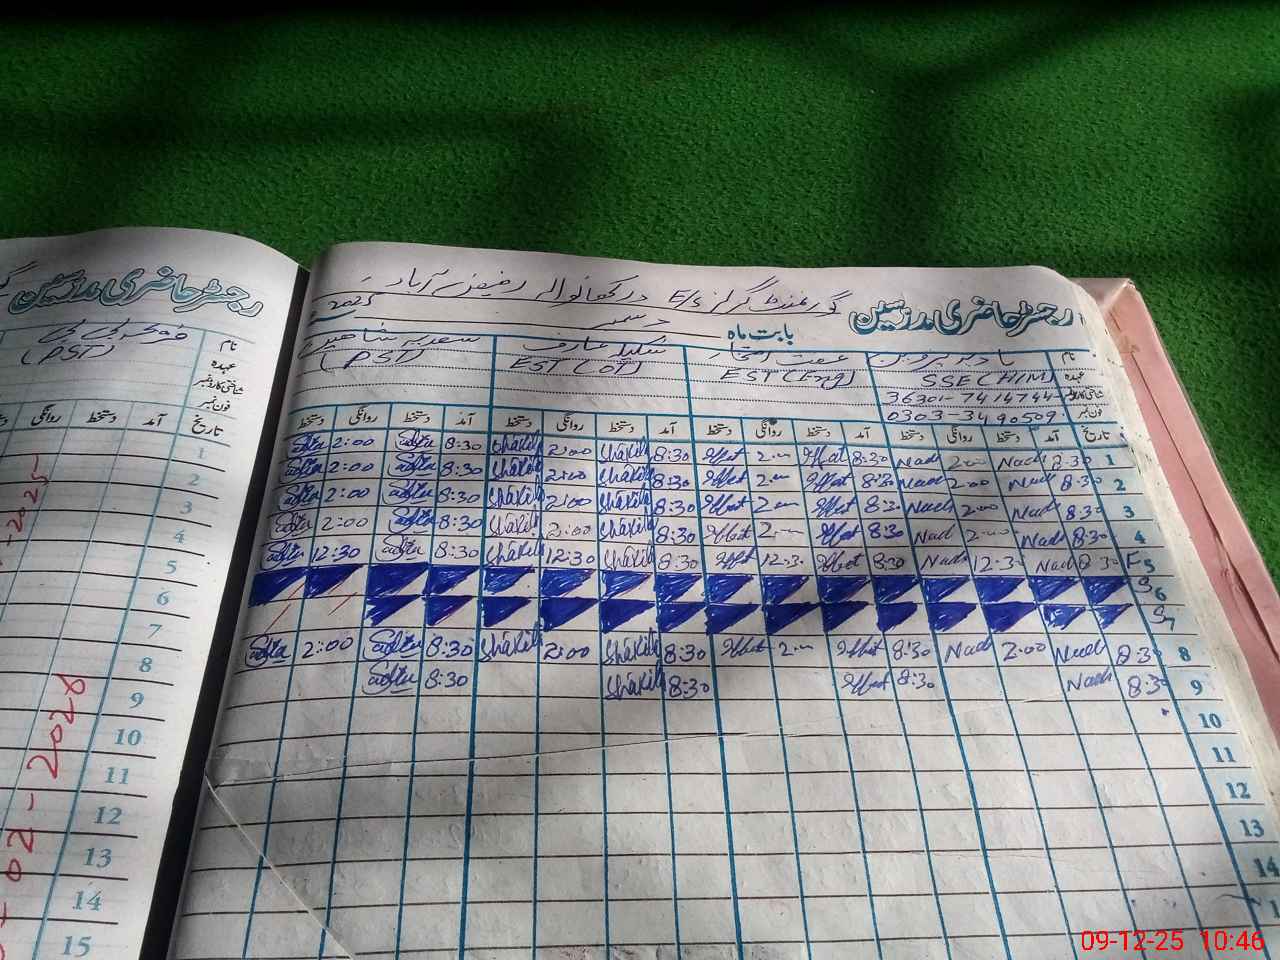 رجسٹر حاضری مدرسین
گورنمنٹ گرلز E/S درکھانوالہ رفیق آباد
بابت ماہ دسمبر 2025
نام نادیہ پروین عفت افتخار شکیلہ عارف سعدیہ شاہین
عہدہ SSE (H/M) EST (Eng) EST (OT) (PST)
شناختی کارڈ نمبر 36301-7414744-
فون نمبر 0303-3490509
تاریخ آمد دستخط روانگی دستخط آمد دستخط روانگی دستخط آمد دستخط روانگی دستخط آمد دستخط روانگی دستخط
1 8:30 Nadi 2:00 Nadi 8:30 Iffat 2:00 Iffat 8:30 Shakila 2:00 Shakila 8:30 Sadia 2:00 Sadia
2 8:30 Nadi 2:00 Nadi 8:30 Iffat 2:00 Iffat 8:30 Shakila 2:00 Shakila 8:30 Sadia 2:00 Sadia
3 8:30 Nadi 2:00 Nadi 8:30 Iffat 2:00 Iffat 8:30 Shakila 2:00 Shakila 8:30 Sadia 2:00 Sadia
4 8:30 Nadi 2:00 Nadi 8:30 Iffat 2:00 Iffat 8:30 Shakila 2:00 Shakila 8:30 Sadia 2:00 Sadia
F5 8:30 Nadi 12:30 Nadi 8:30 Iffat 12:30 Iffat 8:30 Shakila 12:30 Shakila 8:30 Sadia 12:30 Sadia
S6
S7
8 8:30 Nadi 2:00 Nadi 8:30 Iffat 2:00 Iffat 8:30 Shakila 2:00 Shakila 8:30 Sadia 2:00 Sadia
9 8:30 Nadi 8:30 Iffat 8:30 Shakila 8:30 Sadia
10
11
12
13
14
رجسٹر حاضری مدرسین
نام
عہدہ (PST)
شناختی کارڈ نمبر
فون نمبر
تاریخ آمد دستخط روانگی
1
2
3
4
5
6
7
8
9
10
11
12
13
14
15
-2025
02-2028
09-12-25 10:46